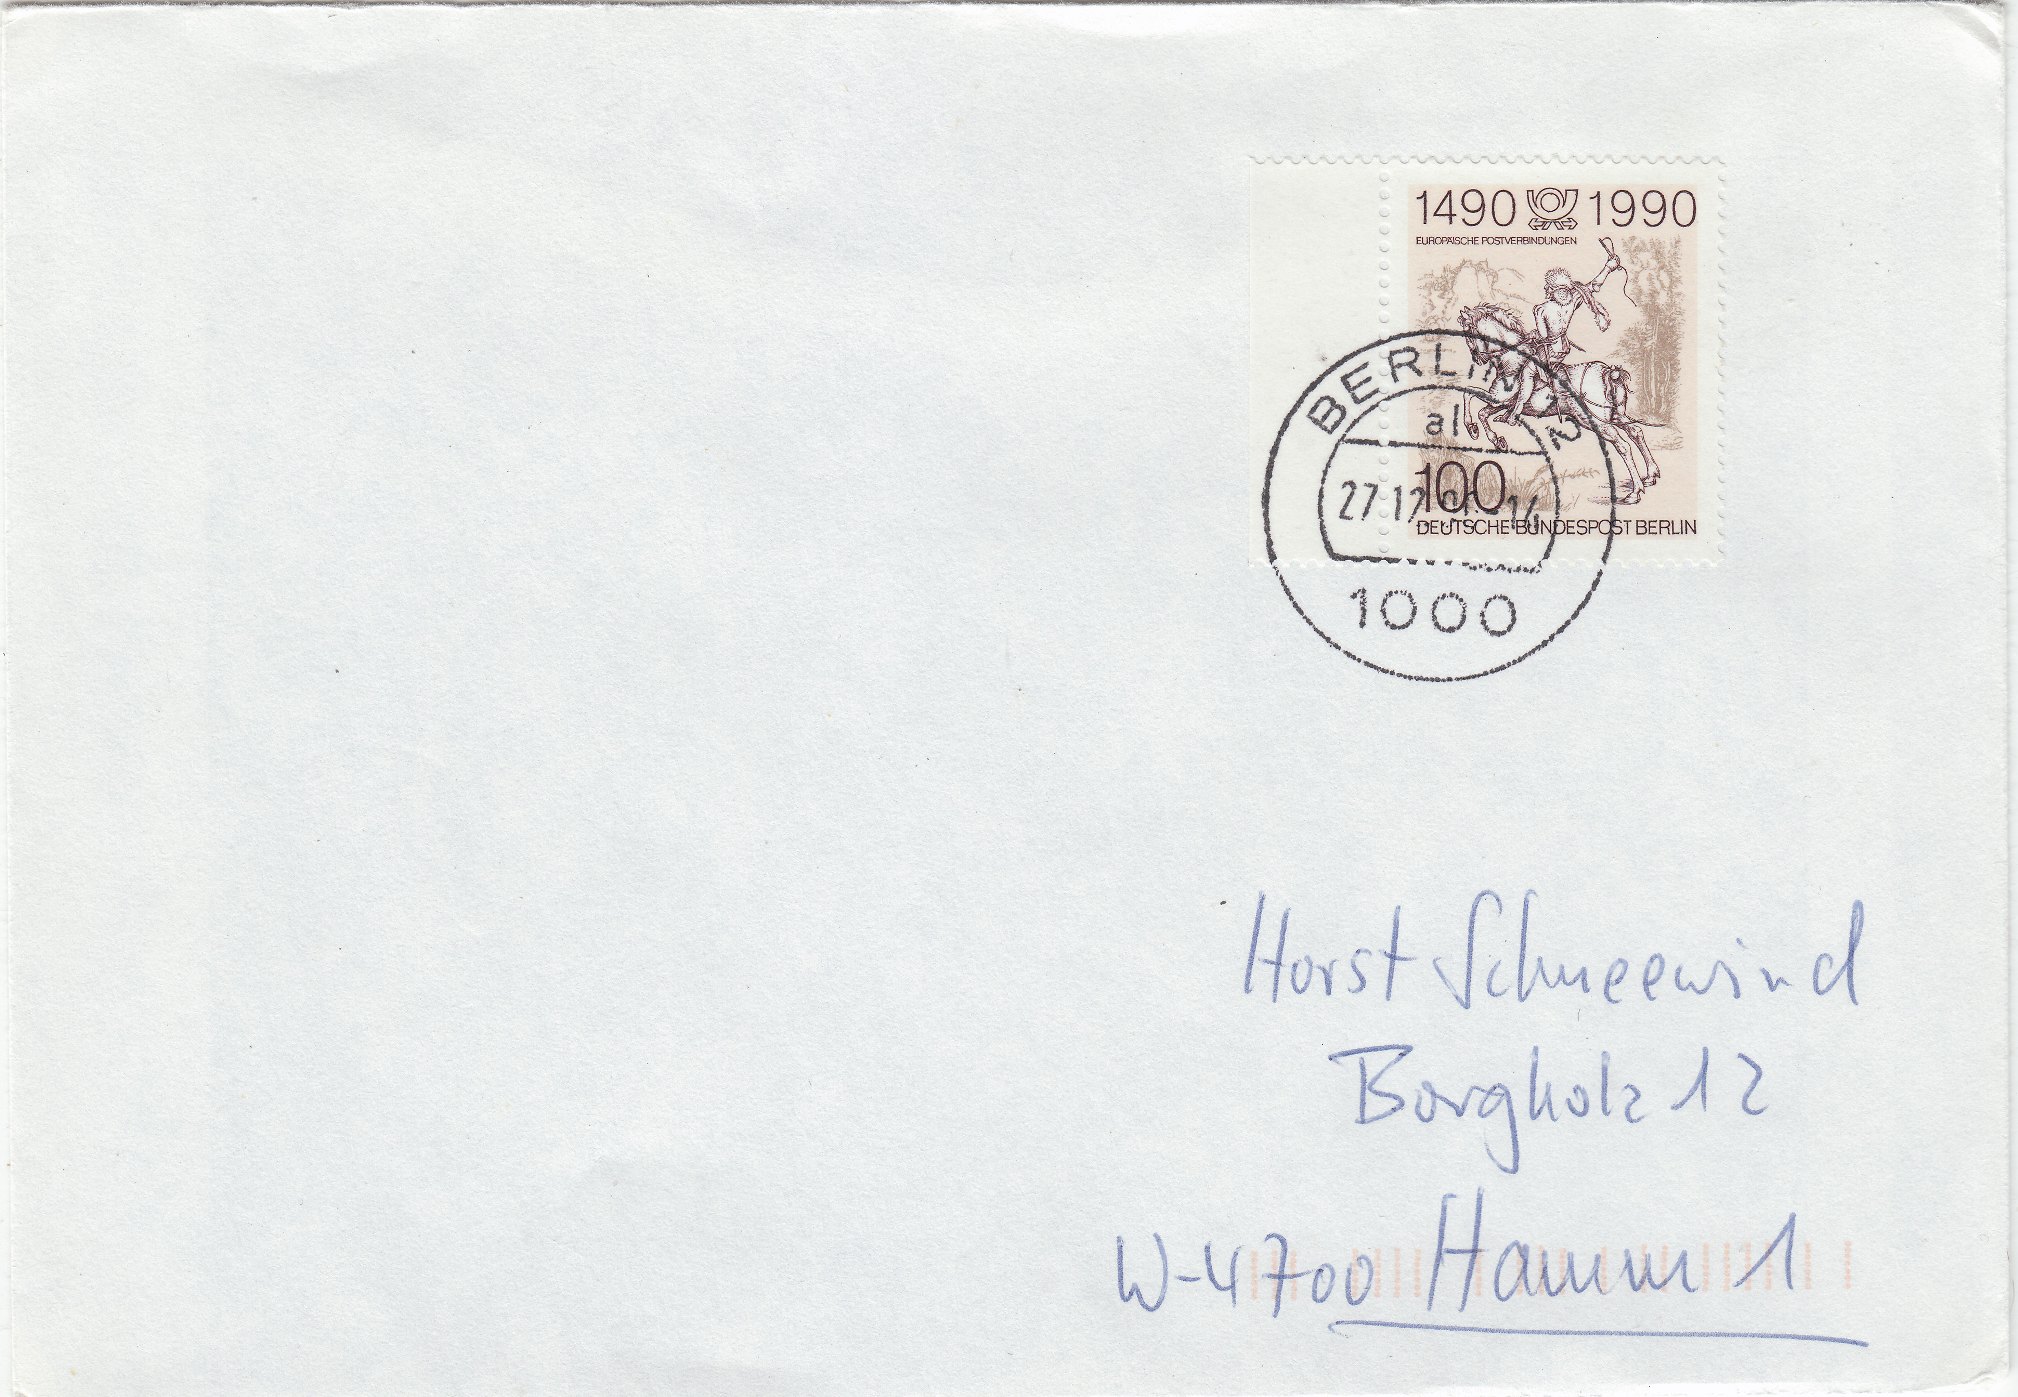 1490 1990
EUROPÄISCHE POSTVERBINDUNGEN
100
DEUTSCHE BUNDESPOST BERLIN
BERLIN 12
al
27.12. -14
1000
Horst Schneewind
Borgholz 12
W-4700 Hamm 1